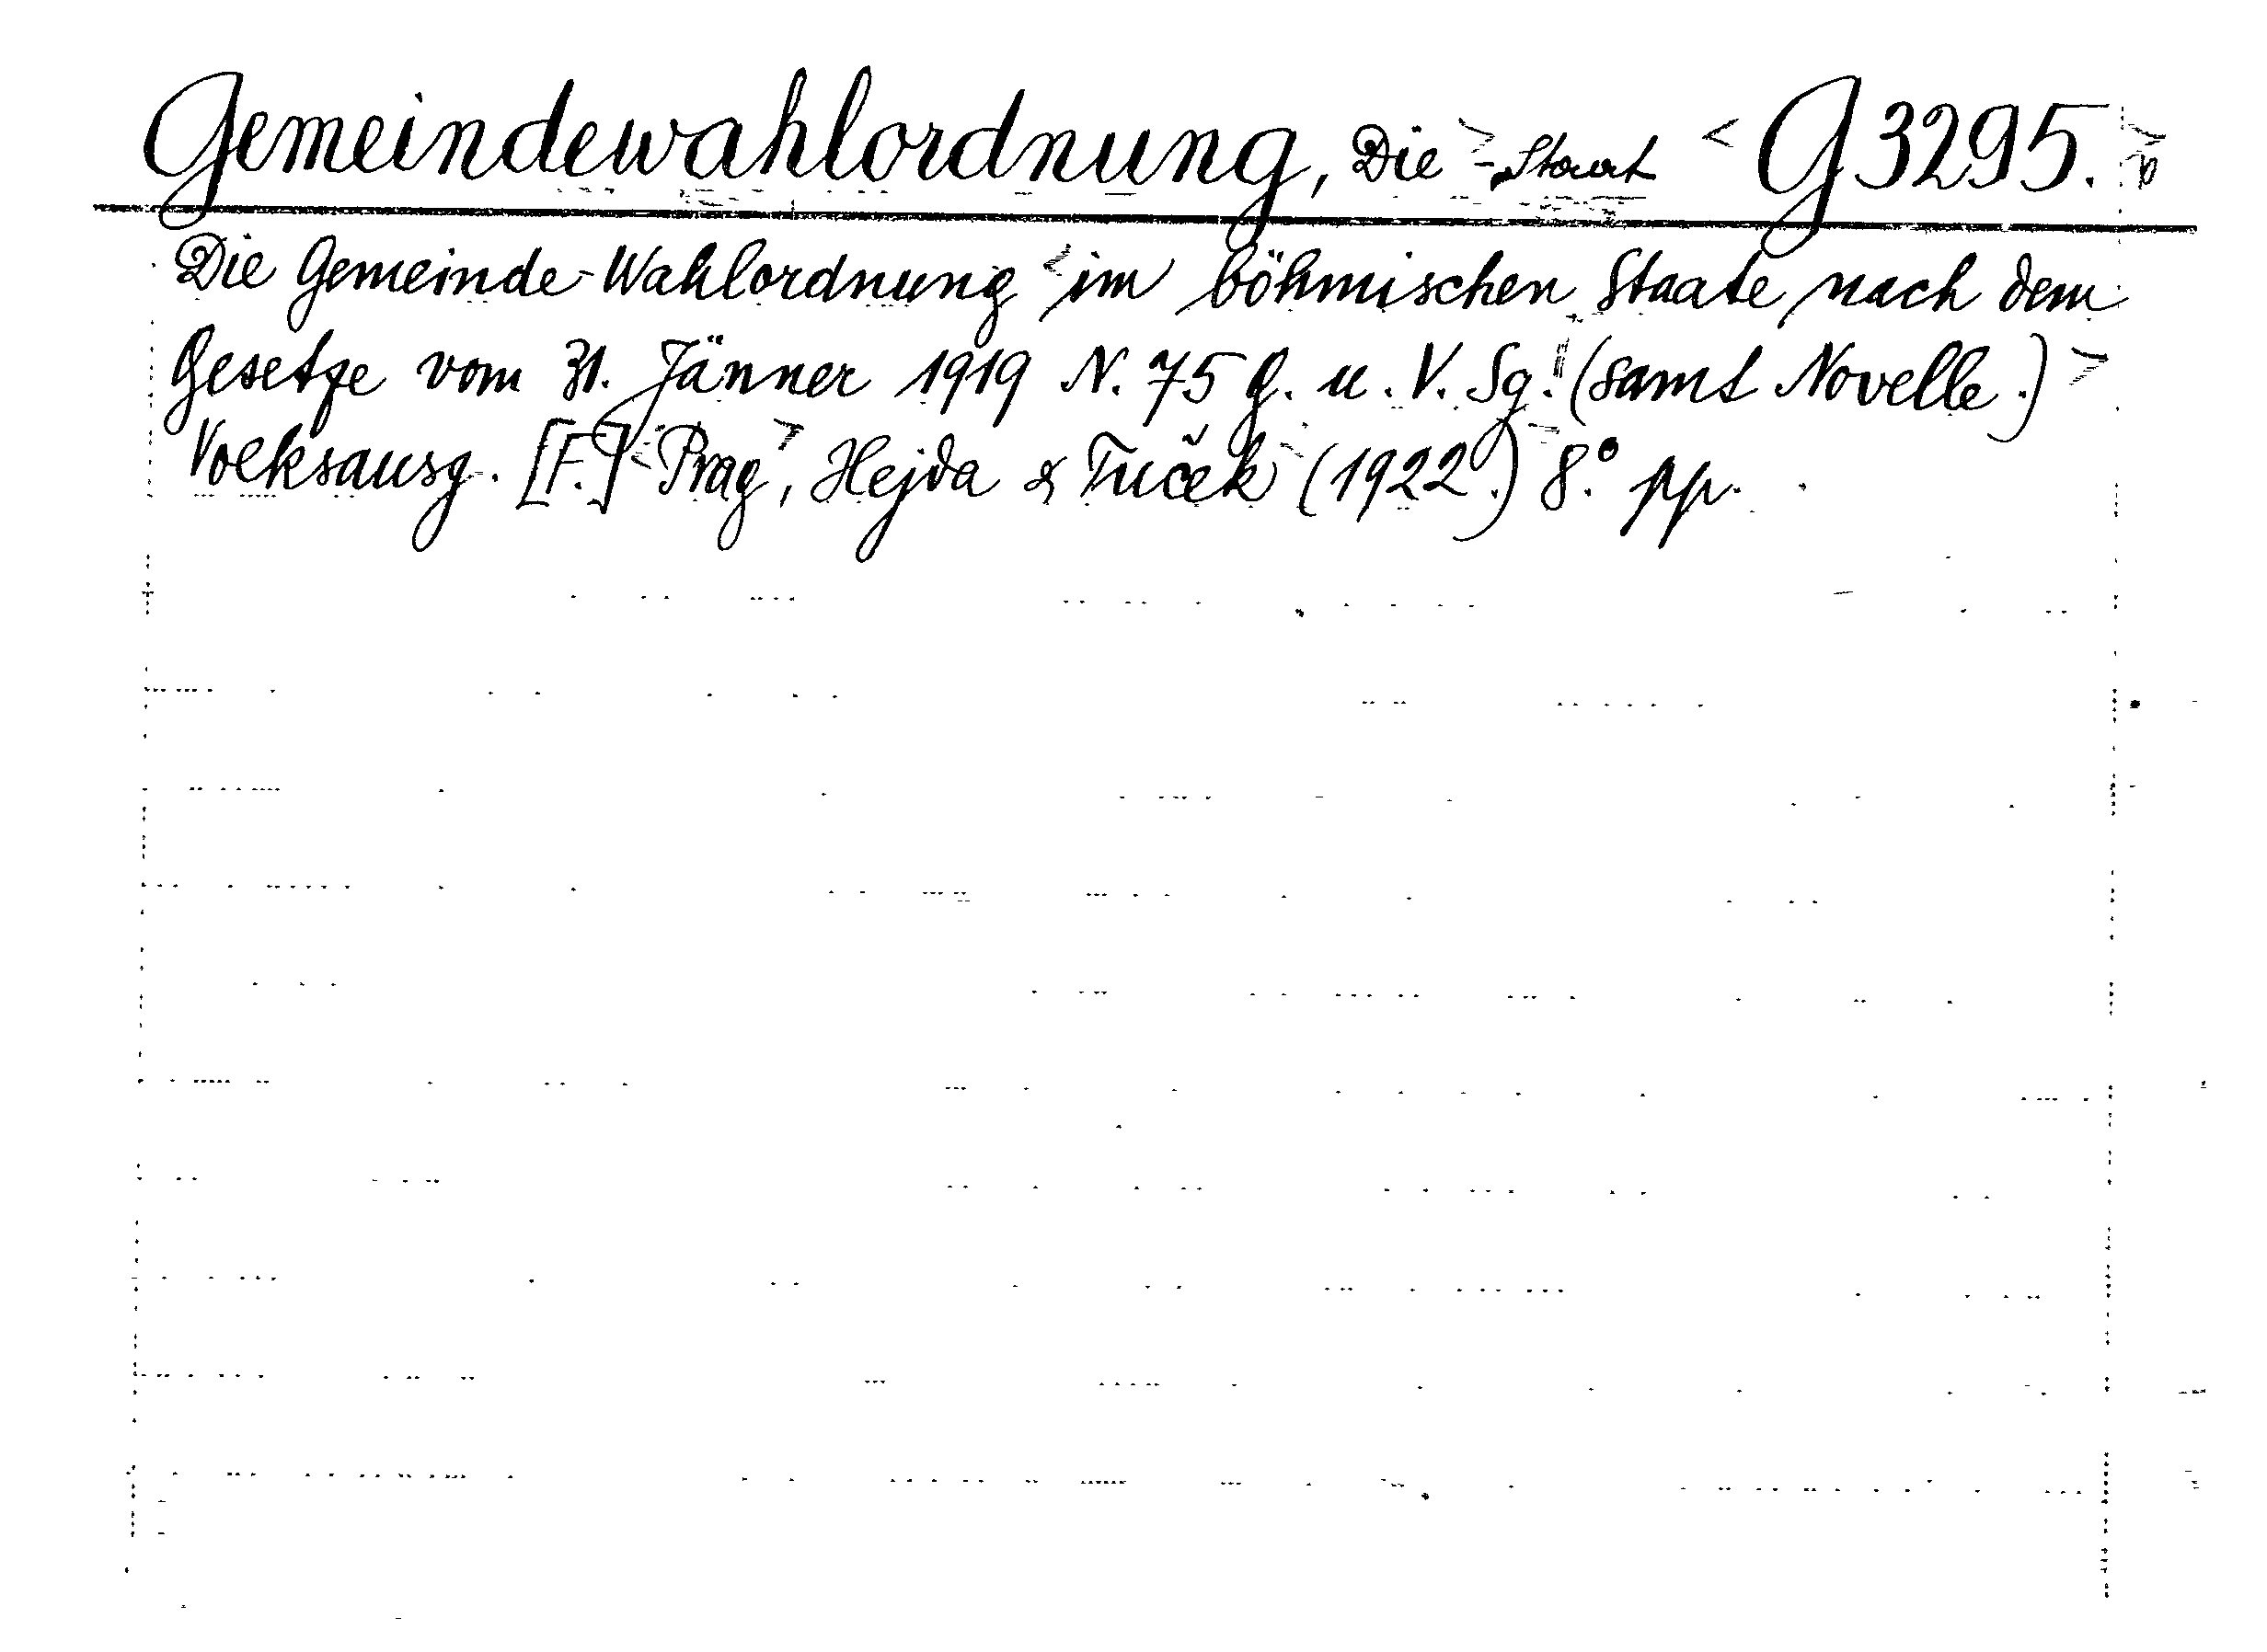 Gemeindewahlordnung, Die - Staat G 3295.
Die Gemeinde-Wahlordnung im böhmischen Staate nach dem
Gesetze vom 31. Jänner 1919 N. 75 G. u. V. Sg. (samt Novelle.)
Volksausg. [F.] Prag, Hejda & Tuček (1922.) 8.° pp.